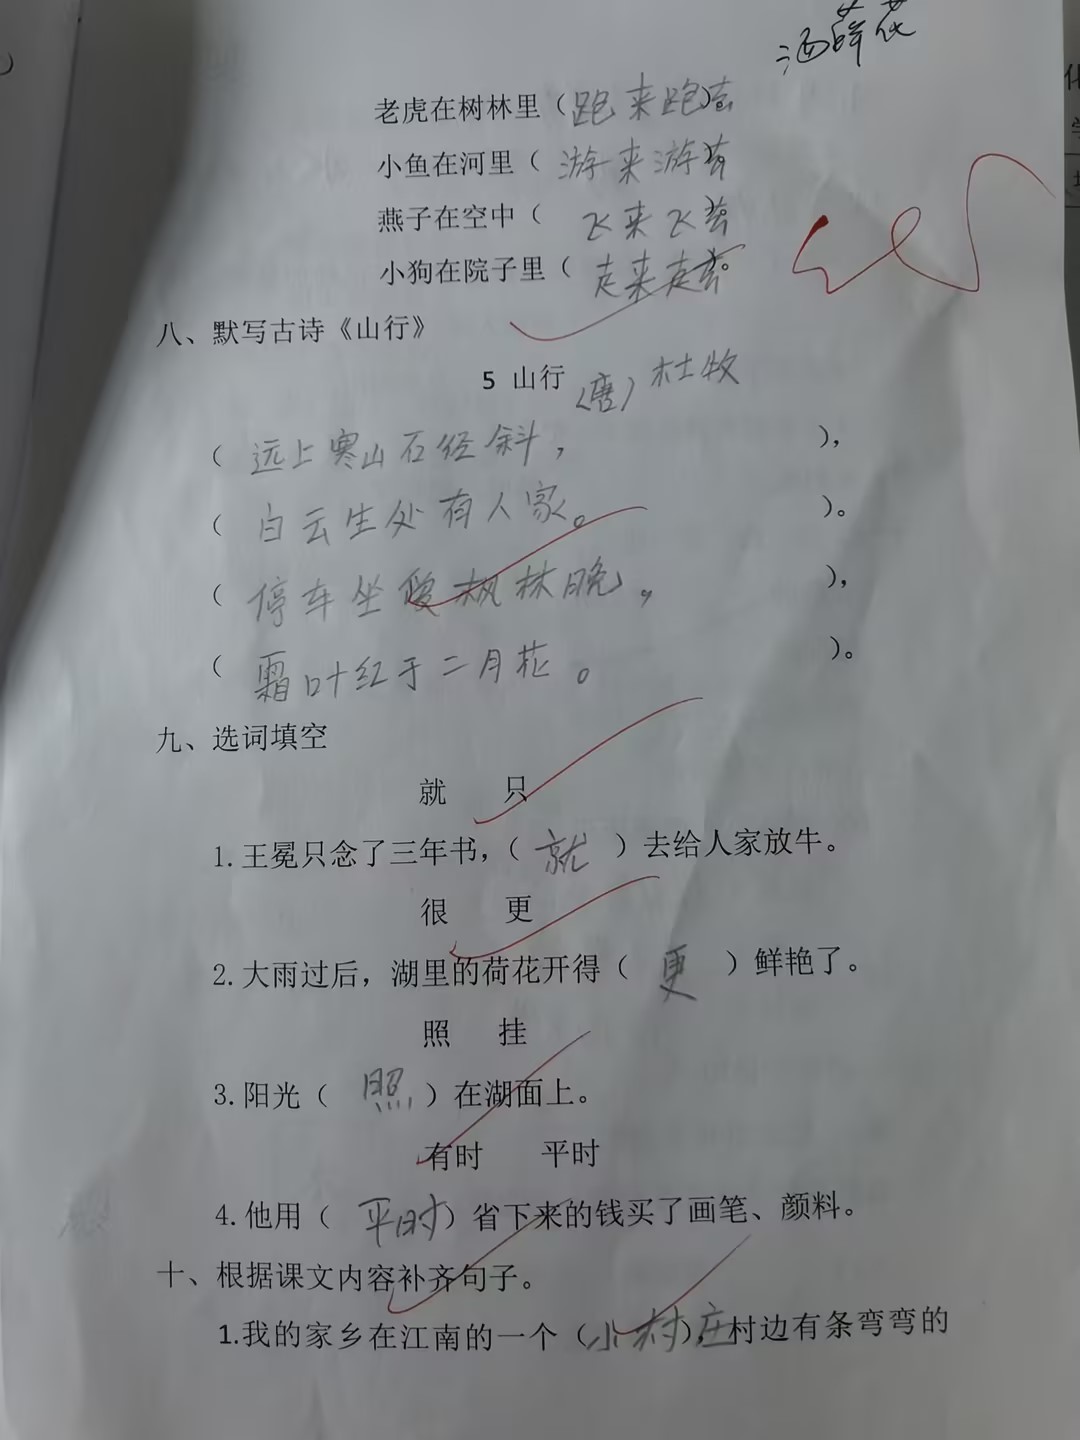 老虎在树林里（跑来跑去）
小鱼在河里（游来游去）
燕子在空中（飞来飞去）
小狗在院子里（走来走去）。
八、默写古诗《山行》
5 山行（唐）杜牧
（远上寒山石径斜，），
（白云生处有人家。）。
（停车坐爱枫林晚，），
（霜叶红于二月花。）。
九、选词填空
就 只
1.王冕只念了三年书，（就）去给人家放牛。
很 更
2.大雨过后，湖里的荷花开得（更）鲜艳了。
照 挂
3.阳光（照）在湖面上。
有时 平时
4.他用（平时）省下来的钱买了画笔、颜料。
十、根据课文内容补齐句子。
1.我的家乡在江南的一个（小村庄），村边有条弯弯的